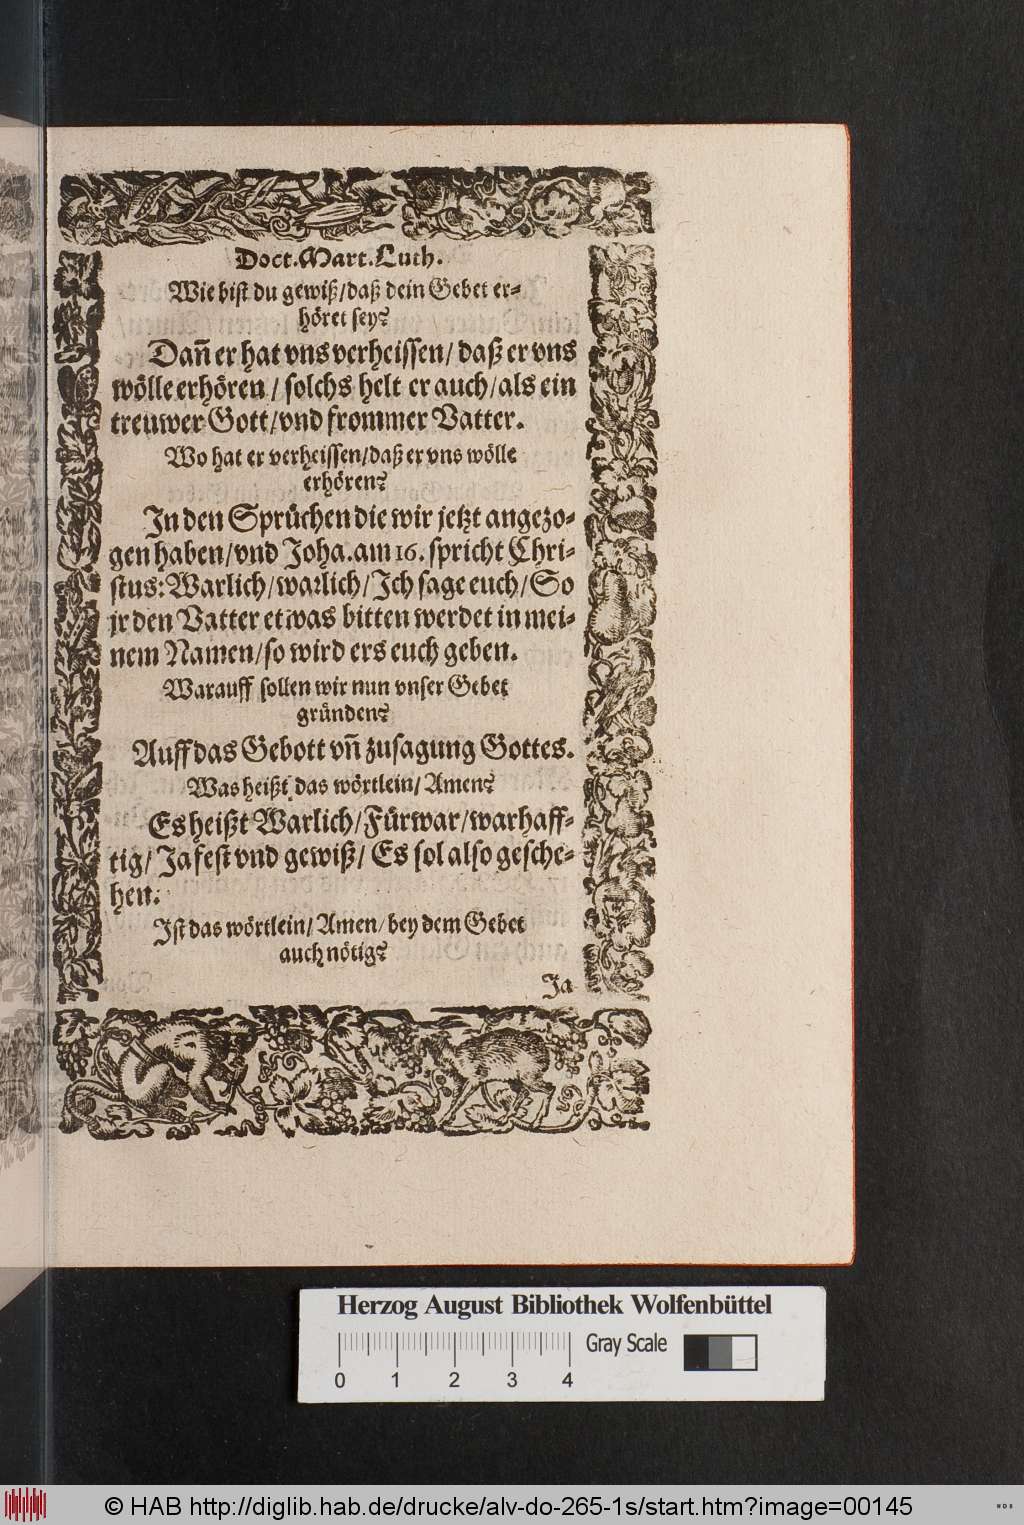 Doct. Mart. Luth.
Wie bist du gewiß/daß dein Gebet er-
höret sey?
Dañ er hat vns verheissen/ daß er vns
wölle erhören/ solchs helt er auch/als ein
treuwer Gott/vnd frommer Vatter.
Wo hat er verheissen/daß er vns wölle
erhören?
In den Sprüchen die wir jetzt angezo-
gen haben/vnd Joha. am 16. spricht Chri-
stus: Warlich/warlich/Ich sage euch/So
jr den Vatter etwas bitten werdet in mei-
nem Namen/so wird ers euch geben.
Warauff sollen wir nun vnser Gebet
gründen?
Auff das Gebott vñ zusagung Gottes.
Was heißt das wörtlein/ Amen?
Es heißt Warlich/Fürwar/warhaff-
tig/ Ja fest vnd gewiß/ Es sol also gesche-
hen.
Ist das wörtlein/ Amen/ bey dem Gebet
auch nötig?
Ja
Herzog August Bibliothek Wolfenbüttel
Gray Scale
0 1 2 3 4
© HAB http://diglib.hab.de/drucke/alv-do-265-1s/start.htm?image=00145